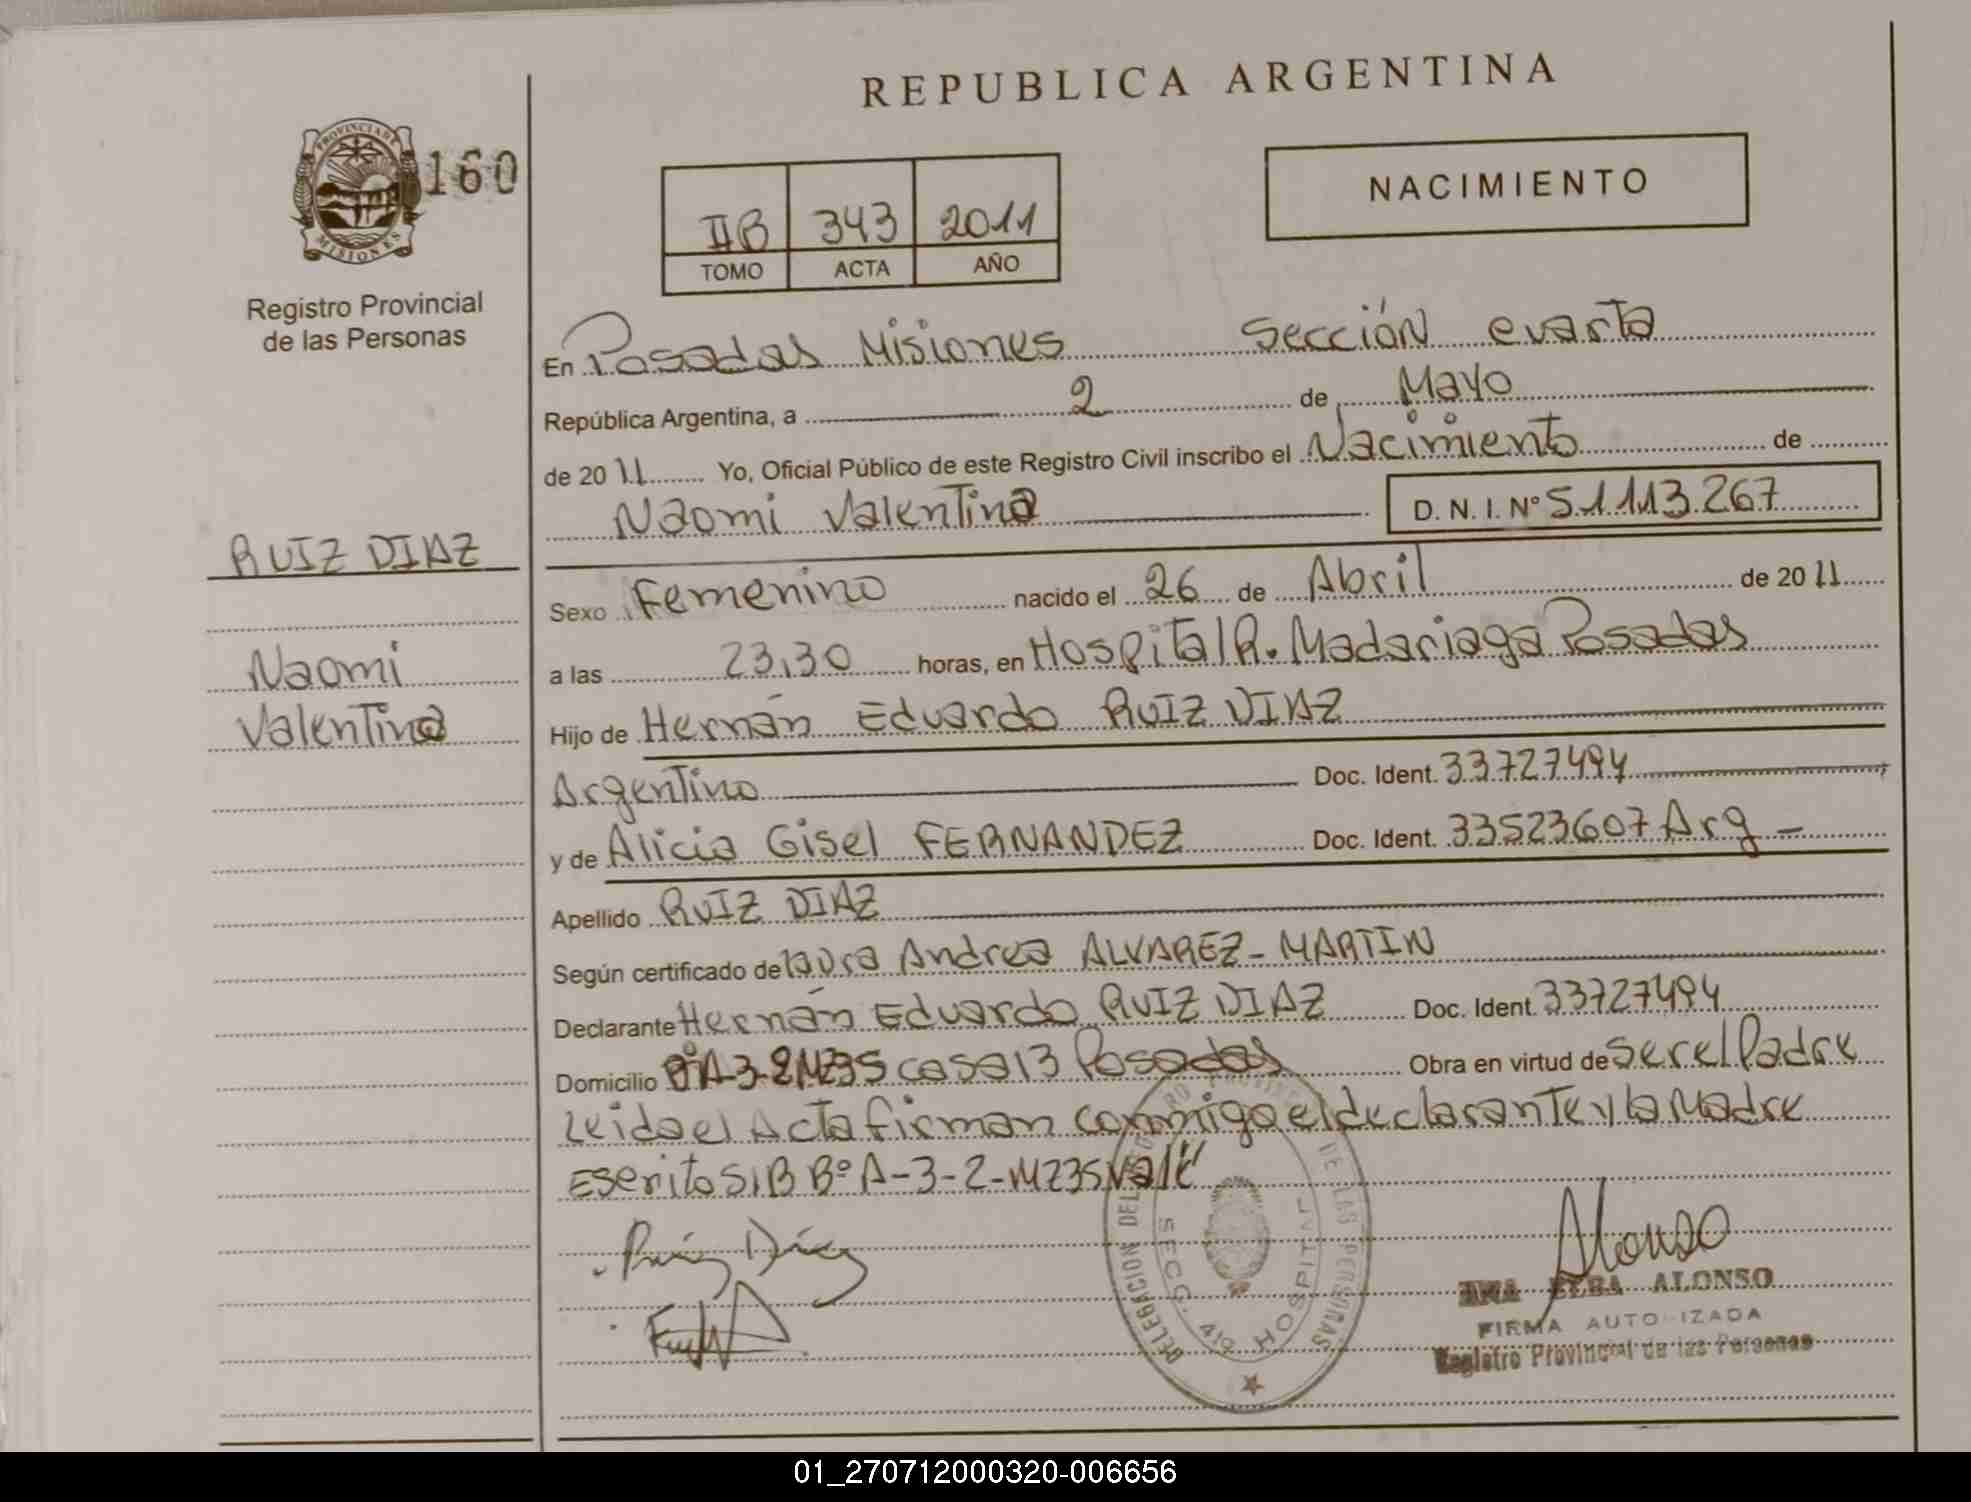 REPUBLICA ARGENTINA
PROVINCIA DE
MISIONES
160
Registro Provincial
de las Personas
IIB 343 2011
TOMO ACTA AÑO
NACIMIENTO
En Posadas Misiones Sección cuarta
República Argentina, a 2 de Mayo
de 2011 Yo, Oficial Público de este Registro Civil inscribo el Nacimiento de
Naomi Valentina D. N. I. Nº 51.113.267
RUIZ DIAZ
Naomi
Valentina
Sexo Femenino nacido el 26 de Abril de 2011
a las 23,30 horas, en Hospital R. Madariaga Posadas
Hijo de Hernán Eduardo RUIZ DIAZ
Argentino Doc. Ident. 33727494
y de Alicia Gisel FERNANDEZ Doc. Ident. 33523607 Arg -
Apellido RUIZ DIAZ
Según certificado de laura Andrea ALVAREZ - MARTIN
Declarante Hernán Eduardo RUIZ DIAZ Doc. Ident. 33727494
Domicilio Bº A-3-2 MZ35 casa 13 Posadas Obra en virtud de ser el Padre
Leida el Acta firman conmigo el declarante y la Madre
Escrito S/B Bº A-3-2-MZ35 Vale
Ruiz Diaz
DELEGACION DEL REGISTRO PROVINCIAL DE LAS PERSONAS
SECC. 4ta HOSPITAL
Alonso
ANA ALONSO
FIRMA AUTORIZADA
Registro Provincial de las Personas
01_270712000320-006656